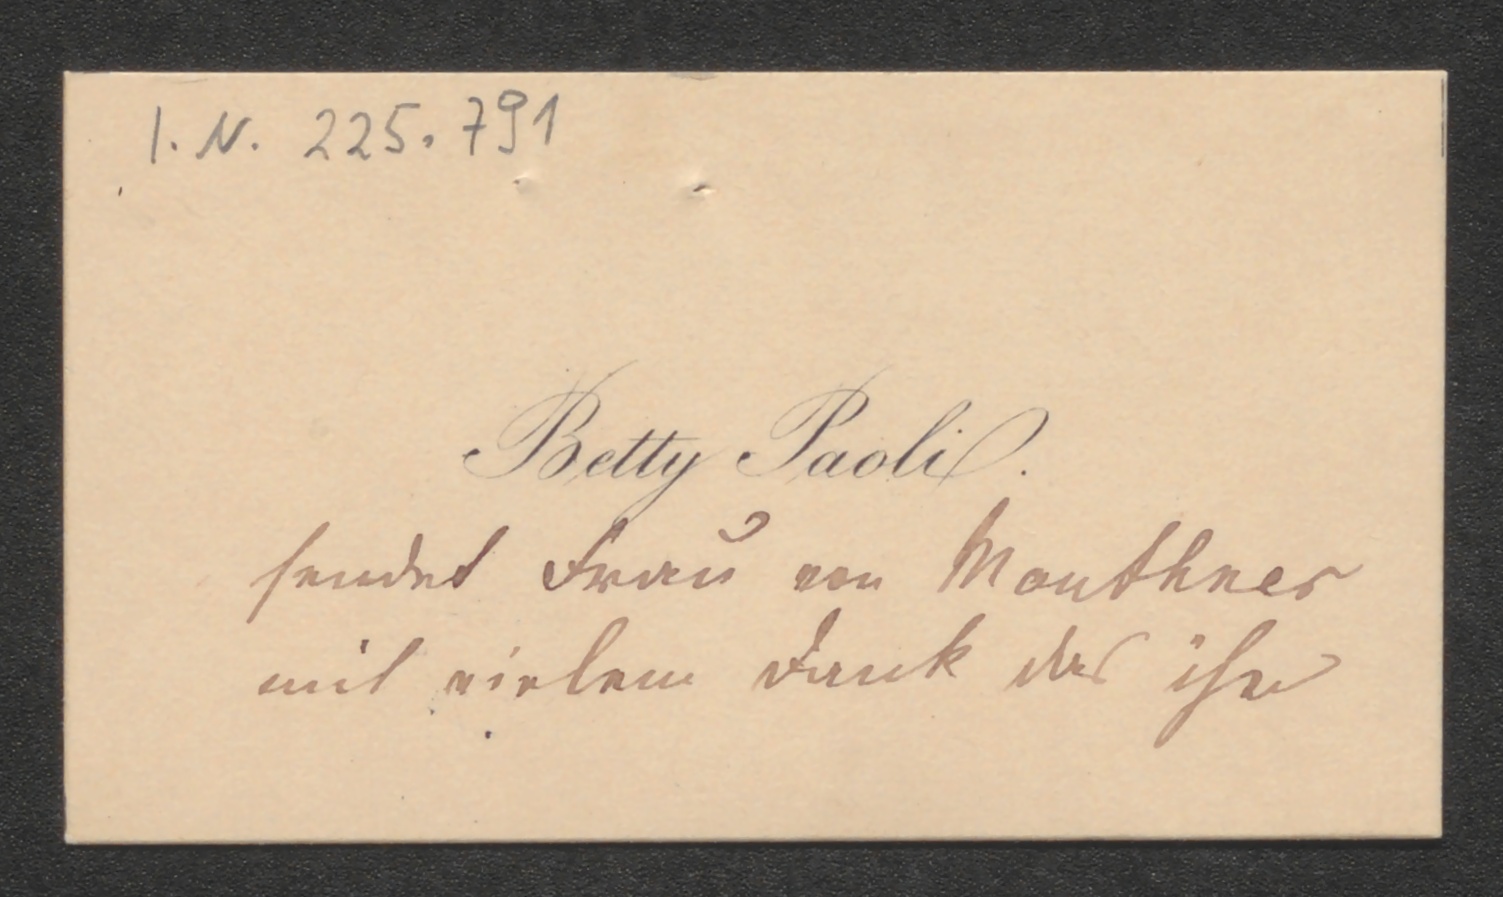 I. N. 225.791
Betty Paoli.
sendet Frau von Mauthner
mit vielem Dank das ihr